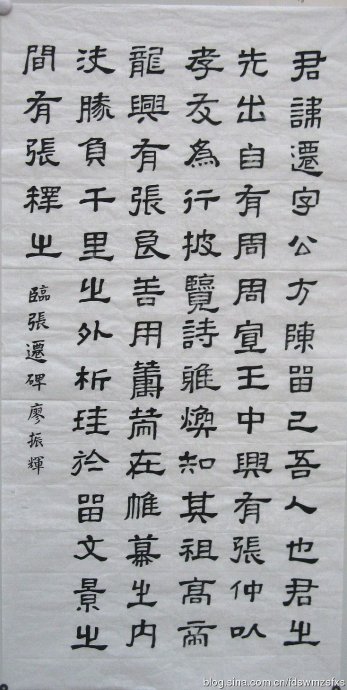 君諱遷字公方陳留己吾人也君之
先出自有周周宣王中興有張仲以
孝友為行披覽詩雅煥知其祖高帝
龍興有張良善用籌策在帷幕之内
决勝負千里之外析珪於留文景之
間有張釋之
臨張遷碑 廖振輝
blog.sina.com.cn/fdswmzsfxs